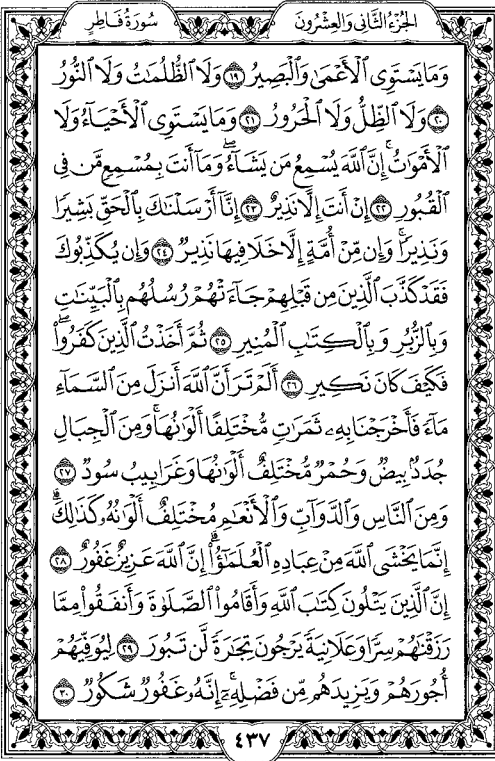 سُورَةُ فَاطِرٍ
الجُزْءُ الثَّانِي وَالعِشْرُونَ
وَمَا يَسْتَوِى ٱلْأَعْمَىٰ وَٱلْبَصِيرُ ١٩ وَلَا ٱلظُّلُمَـٰتُ وَلَا ٱلنُّورُ
٢٠ وَلَا ٱلظِّلُّ وَلَا ٱلْحَرُورُ ٢١ وَمَا يَسْتَوِى ٱلْأَحْيَآءُ وَلَا
ٱلْأَمْوَٰتُ ۚ إِنَّ ٱللَّهَ يُسْمِعُ مَن يَشَآءُ ۖ وَمَآ أَنتَ بِمُسْمِعٍ مَّن فِى
ٱلْقُبُورِ ٢٢ إِنْ أَنتَ إِلَّا نَذِيرٌ ٢٣ إِنَّآ أَرْسَلْنَـٰكَ بِٱلْحَقِّ بَشِيرًا
وَنَذِيرًا ۚ وَإِن مِّنْ أُمَّةٍ إِلَّا خَلَا فِيهَا نَذِيرٌ ٢٤ وَإِن يُكَذِّبُوكَ
فَقَدْ كَذَّبَ ٱلَّذِينَ مِن قَبْلِهِمْ جَآءَتْهُمْ رُسُلُهُم بِٱلْبَيِّنَـٰتِ
وَبِٱلزُّبُرِ وَبِٱلْكِتَـٰبِ ٱلْمُنِيرِ ٢٥ ثُمَّ أَخَذْتُ ٱلَّذِينَ كَفَرُوا۟ ۖ
فَكَيْفَ كَانَ نَكِيرِ ٢٦ أَلَمْ تَرَ أَنَّ ٱللَّهَ أَنزَلَ مِنَ ٱلسَّمَآءِ
مَآءً فَأَخْرَجْنَا بِهِۦ ثَمَرَٰتٍ مُّخْتَلِفًا أَلْوَٰنُهَا ۚ وَمِنَ ٱلْجِبَالِ
جُدَدٌۢ بِيضٌ وَحُمْرٌ مُّخْتَلِفٌ أَلْوَٰنُهَا وَغَرَابِيبُ سُودٌ ٢٧
وَمِنَ ٱلنَّاسِ وَٱلدَّوَآبِّ وَٱلْأَنْعَـٰمِ مُخْتَلِفٌ أَلْوَٰنُهُۥ كَذَٰلِكَ ۗ
إِنَّمَا يَخْشَى ٱللَّهَ مِنْ عِبَادِهِ ٱلْعُلَمَـٰٓؤُا۟ ۗ إِنَّ ٱللَّهَ عَزِيزٌ غَفُورٌ ٢٨
إِنَّ ٱلَّذِينَ يَتْلُونَ كِتَـٰبَ ٱللَّهِ وَأَقَامُوا۟ ٱلصَّلَوٰةَ وَأَنفَقُوا۟ مِمَّا
رَزَقْنَـٰهُمْ سِرًّا وَعَلَانِيَةً يَرْجُونَ تِجَـٰرَةً لَّن تَبُورَ ٢٩ لِيُوَفِّيَهُمْ
أُجُورَهُمْ وَيَزِيدَهُم مِّن فَضْلِهِۦٓ ۚ إِنَّهُۥ غَفُورٌ شَكُورٌ ٣٠
٤٣٧